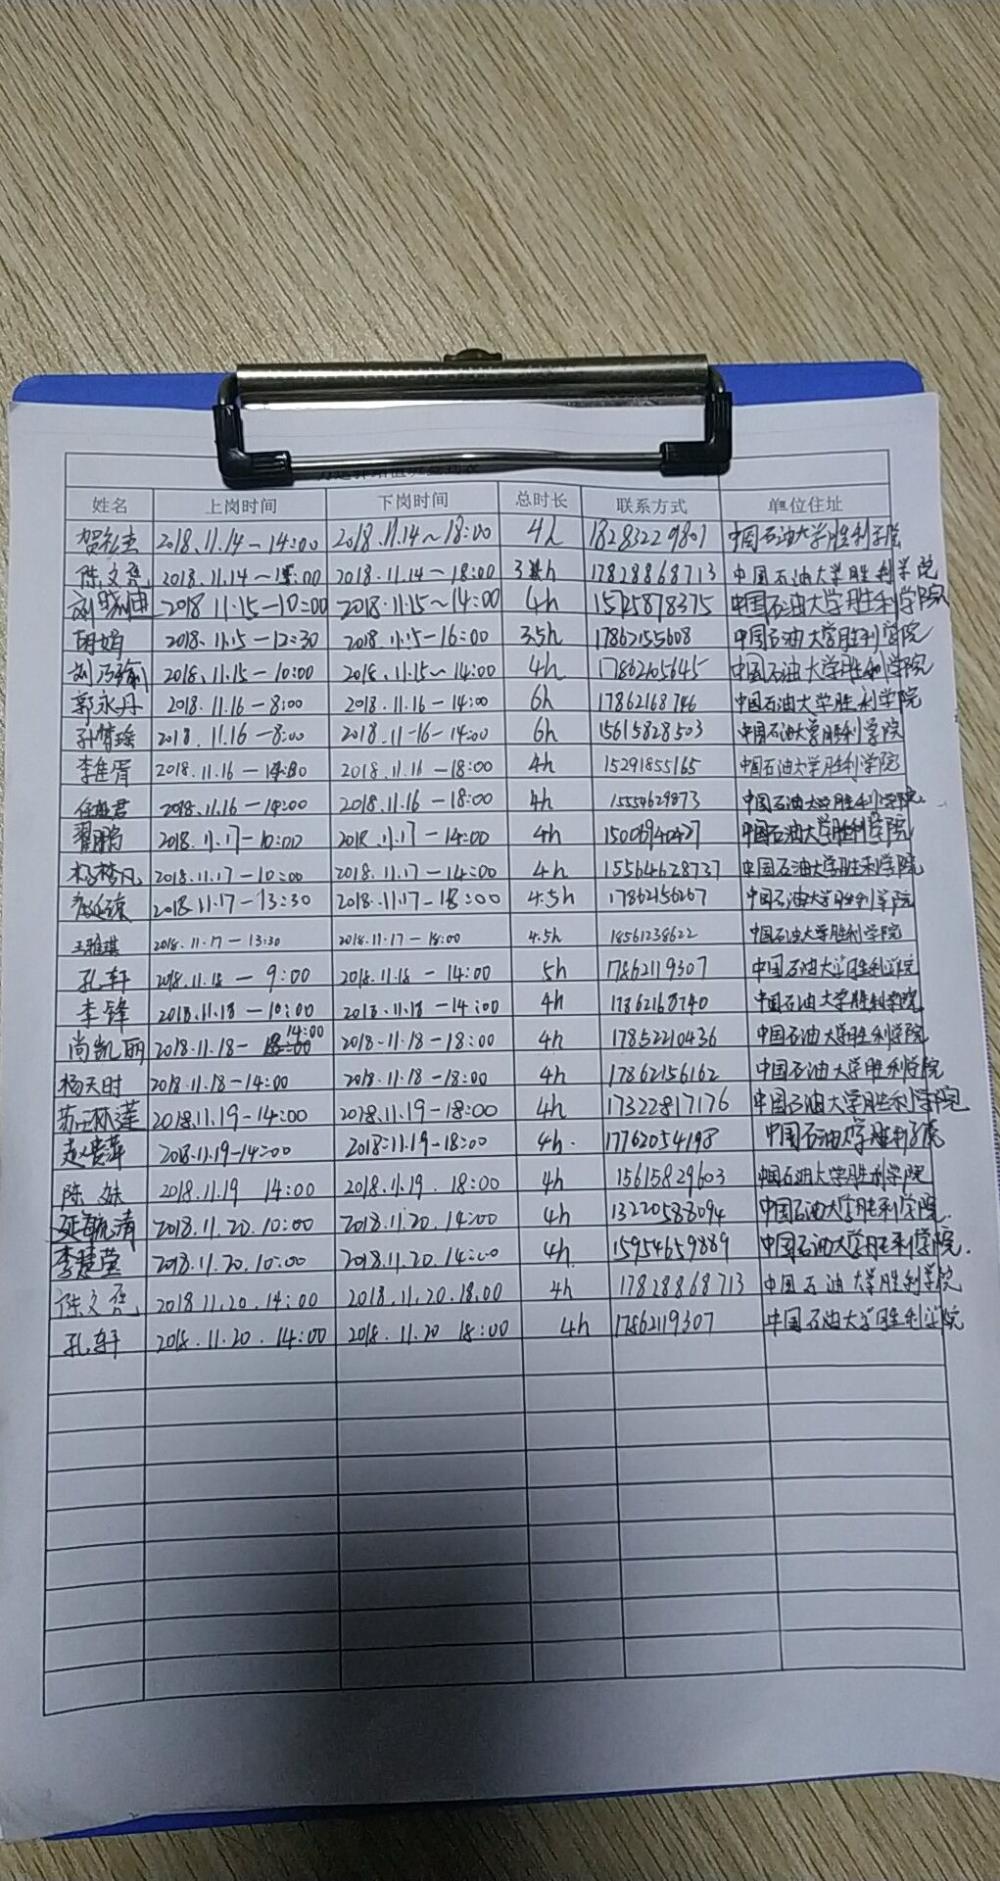 姓名 上岗时间 下岗时间 总时长 联系方式 单位住址
2018.11.14-14:00 2018.11.14~18:00 4h 18283229801 中国石油大学胜利学院
陈文 2018.11.14-15:00 2018.11.14-18:00 3h 17828868713 中国石油大学胜利学院
刘 2018 11.15-10:00 2018.11.15~14:00 4h 15725878375 中国石油大学胜利学院
胡娟 2018.11.15-12:30 2018.11.15-16:00 3.5h 17862155608 中国石油大学胜利学院
刘 2018.11.15-10:00 2018.11.15~14:00 4h 17862105645 中国石油大学胜利学院
郭永丹 2018.11.16-8:00 2018.11.16-14:00 6h 17862168746 中国石油大学胜利学院
孙梦瑶 2018.11.16-8:00 2018.11-16-14:00 6h 15615828503 中国石油大学胜利学院
李佳霄 2018.11.16-14:00 2018.11.16-18:00 4h 15291855165 中国石油大学胜利学院
君 2018.11.16-14:00 2018.11.16-18:00 4h 中国石油大学胜利学院
翟鹏 2018.11.17-10:00 2018.11.17-14:00 4h 15006940427 中国石油大学胜利学院
杨梦凡 2018.11.17-10:00 2018.11.17-14:00 4h 15564628737 中国石油大学胜利学院
2018.11.17-13:30 2018.11.17-18:00 4.5h 17862156267 中国石油大学胜利学院
王雅琪 2018.11.17-13:30 2018.11.17-18:00 4.5h 18561238622 中国石油大学胜利学院
孔轩 2018.11.18-9:00 2018.11.18-14:00 5h 17862119307 中国石油大学胜利学院
李锋 2018.11.18-10:00 2018.11.18-14:00 4h 17862168740 中国石油大学胜利学院
尚凯丽 2018.11.18-14:00 2018.11.18-18:00 4h 17852210436 中国石油大学胜利学院
杨天时 2018.11.18-14:00 2018.11.18-18:00 4h 17862156162 中国石油大学胜利学院
苏 莲 2018.11.19-14:00 2018.11.19-18:00 4h 17322817176 中国石油大学胜利学院
赵贵萍 2018.11.19-14:00 2018.11.19-18:00 4h. 17762054198 中国石油大学胜利学院
陈妹 2018.11.19 14:00 2018.11.19.18:00 4h 15615829603 中国石油大学胜利学院
延毓清 2018.11.20.10:00 2018.11.20.14:00 4h 13220588094 中国石油大学胜利学院.
李慧莹 2018.11.20.10:00 2018.11.20.14:00 4h 15954659889 中国石油大学胜利学院.
陈文 2018.11.20.14:00 2018.11.20.18.00 4h 17828868713 中国石油大学胜利学院
孔轩 2018.11.20.14:00 2018.11.20 18:00 4h 17862119307 中国石油大学胜利学院